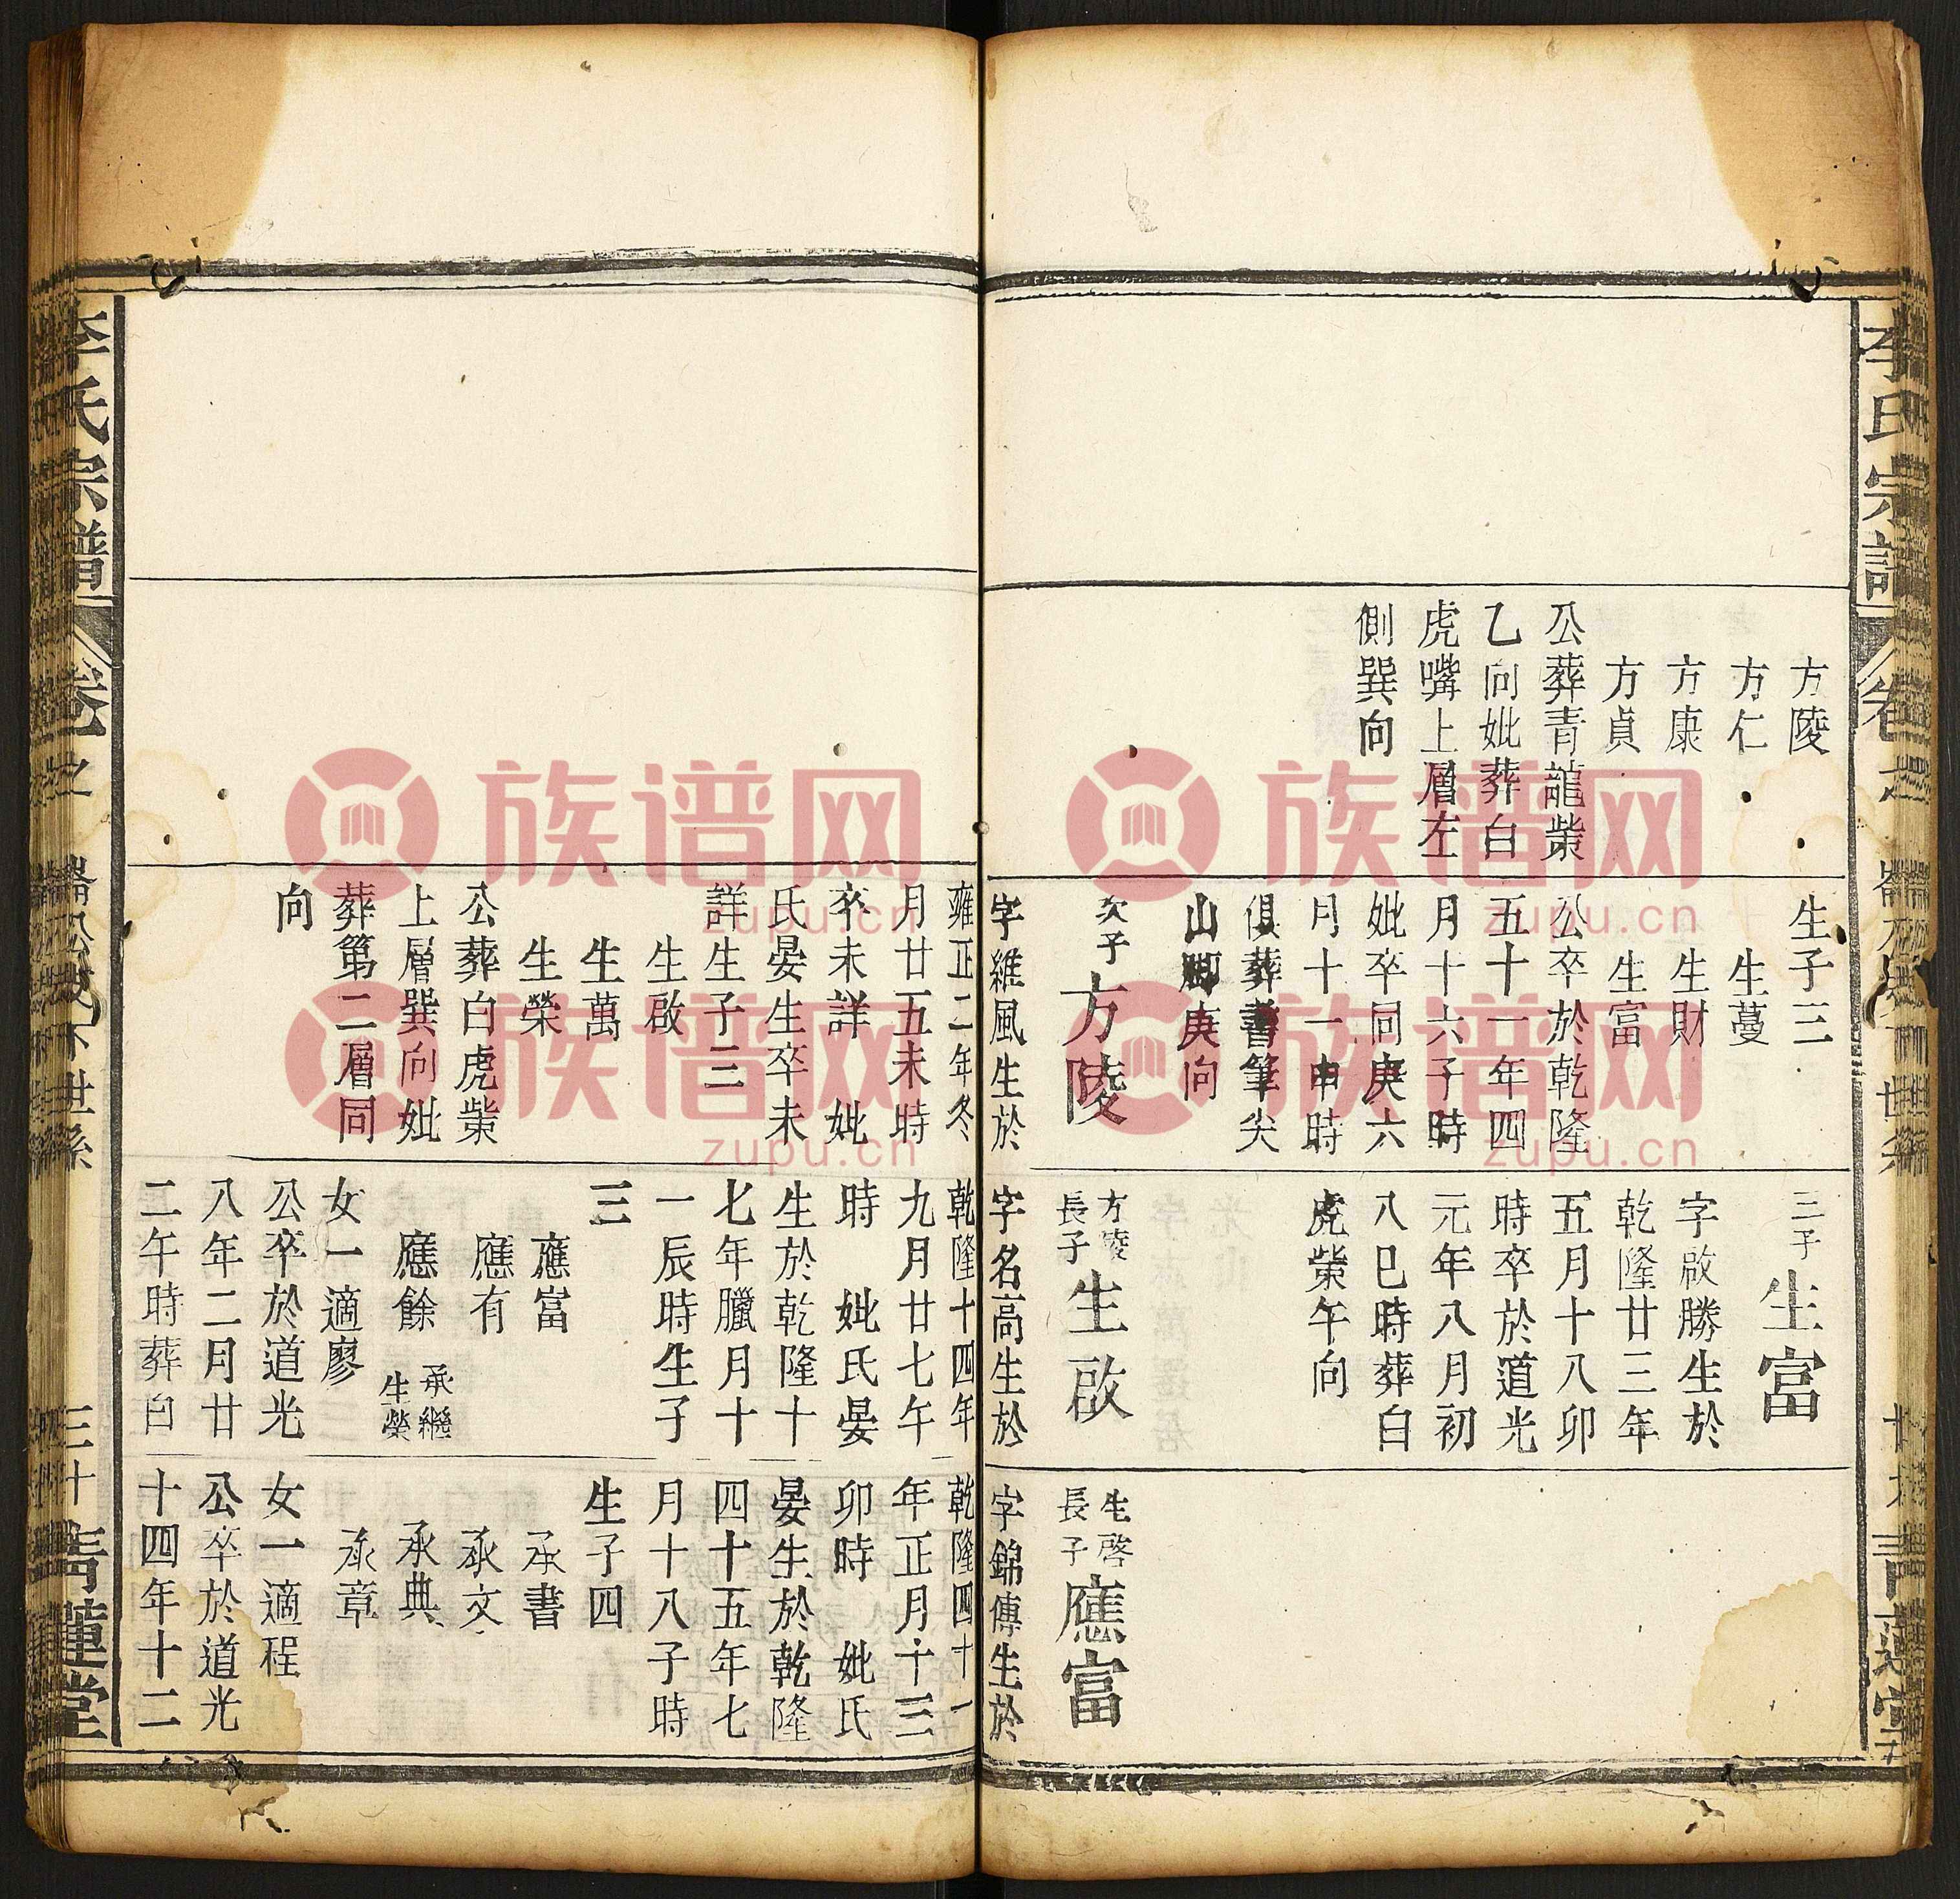 李氏宗譜
卷之
世系
青蓮堂
方陵
方仁
方康
方貞
公葬青龍𡶶
乙向妣葬白
虎嘴上層左
側巽向
生子三
生蔓
生財
生富
公卒於乾隆
五十一年四
月十六子時
妣卒同庚六
月十一申時
俱葬書筆尖
山脚庚向
次子 方陵
字維風生於
三子 生富
字啟勝生於
乾隆廿三年
五月十八卯
時卒於道光
元年八月初
八巳時葬白
虎𡶶午向
方陵
長子 生啟
字名高生於
生啓
長子 應富
字錦傳生於
雍正二年冬
月廿五未時
卒未詳 妣
氏晏生卒未
詳生子三
生啟
生萬
生榮
公葬白虎𡶶
上層巽向妣
葬第二層同
向
乾隆十四年
九月廿七午
時 妣氏晏
生於乾隆十
七年臘月十
一辰時生子
三
應富
應有
應餘 承繼
生榮
女一適廖
公卒於道光
八年二月廿
二午時葬白
乾隆四十一
年正月十三
卯時 妣氏
晏生於乾隆
四十五年七
月十八子時
生子四
承書
承文
承典
承章
女一適程
公卒於道光
十四年十二
李氏宗譜
卷之
下世系
三十
青蓮堂
族谱网
zupu.cn
族谱网
zupu.cn
族谱网
zupu.cn
族谱网
zupu.cn